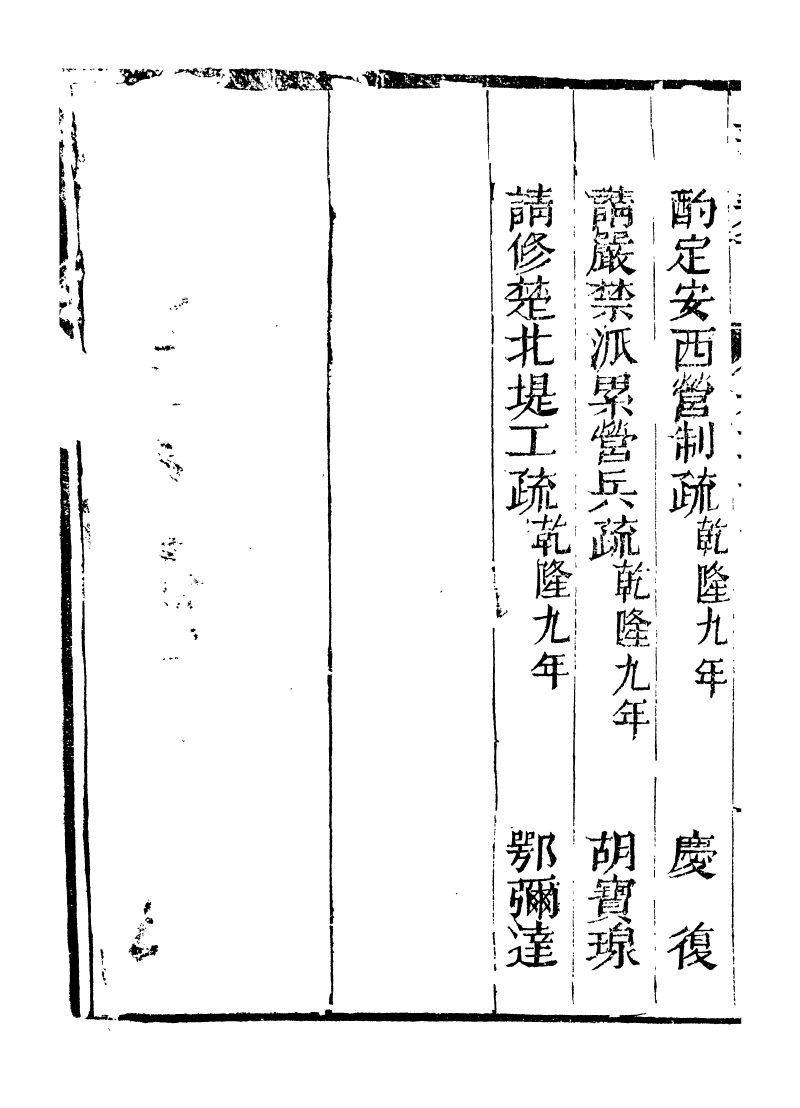 酌定安西營制疏乾隆九年　慶復
請嚴禁派累營兵疏乾隆九年　胡寶瑔
請修楚北堤工疏乾隆九年　鄂彌達